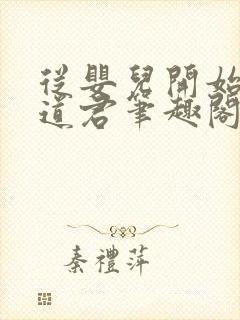 從嬰兒開始
道君筆趣閣
秦禮萍